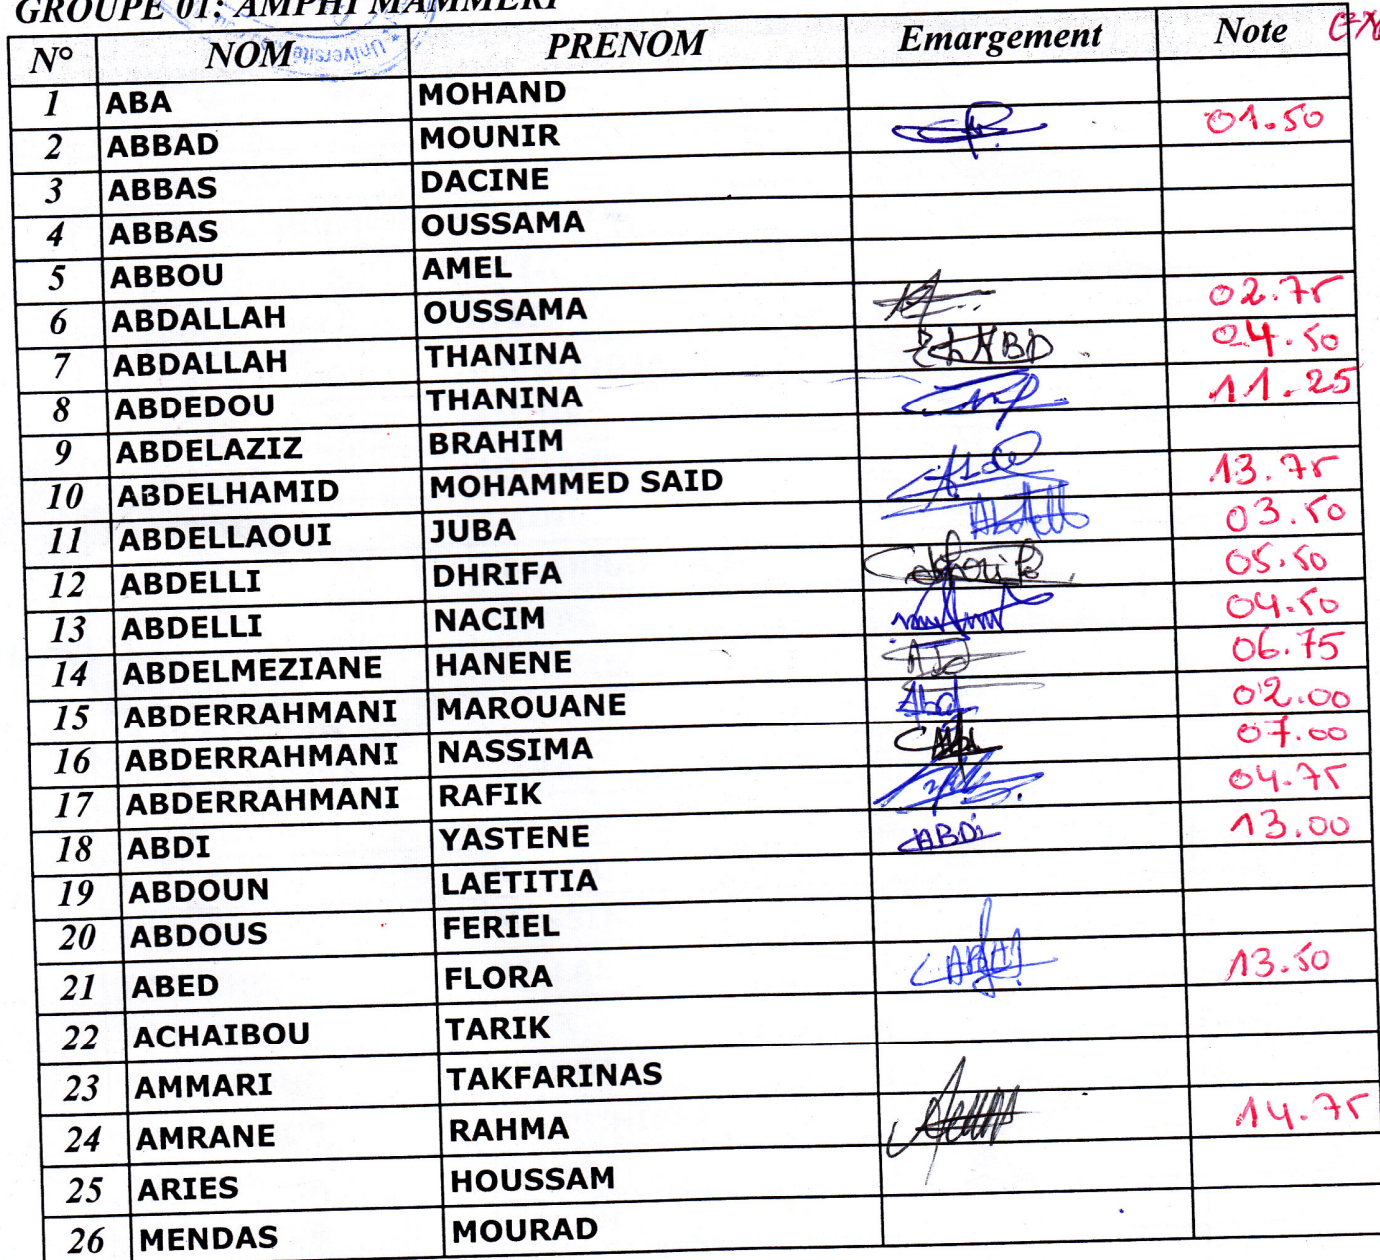 GROUPE 01: AMPHI MAMMERI
Université
N° NOM PRENOM Emargement Note
1 ABA MOHAND
2 ABBAD MOUNIR 01.50
3 ABBAS DACINE
4 ABBAS OUSSAMA
5 ABBOU AMEL
6 ABDALLAH OUSSAMA 02.75
7 ABDALLAH THANINA 04.50
8 ABDEDOU THANINA 11.25
9 ABDELAZIZ BRAHIM
10 ABDELHAMID MOHAMMED SAID 13.75
11 ABDELLAOUI JUBA 03.50
12 ABDELLI DHRIFA 05.50
13 ABDELLI NACIM 04.50
14 ABDELMEZIANE HANENE 06.75
15 ABDERRAHMANI MAROUANE 02.00
16 ABDERRAHMANI NASSIMA 07.00
17 ABDERRAHMANI RAFIK 04.75
18 ABDI YASTENE ABDi 13.00
19 ABDOUN LAETITIA
20 ABDOUS FERIEL
21 ABED FLORA 13.50
22 ACHAIBOU TARIK
23 AMMARI TAKFARINAS
24 AMRANE RAHMA 14.75
25 ARIES HOUSSAM
26 MENDAS MOURAD